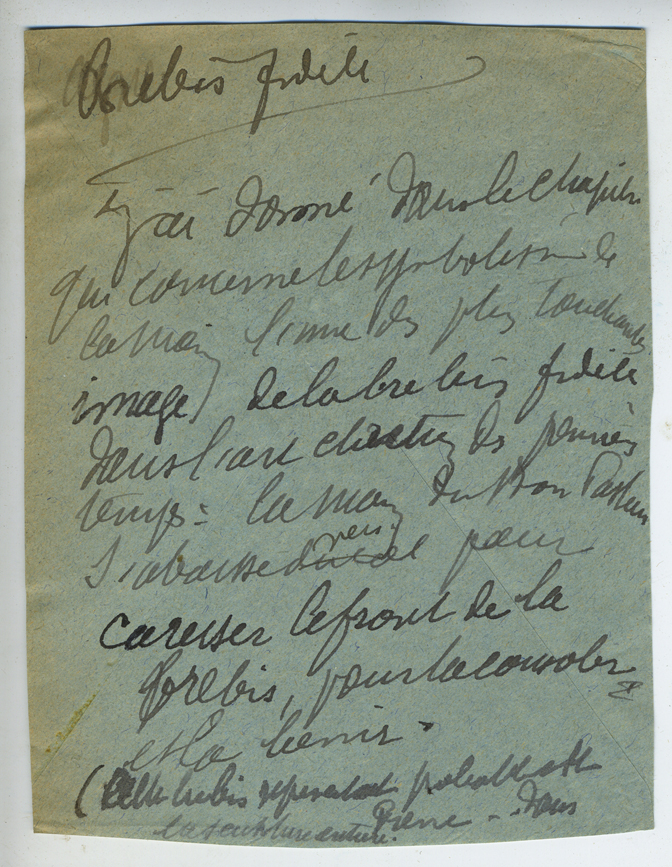 Brebis fidèle
J'ai donné dans le chapitre
qui concerne le symbolisme de
la main l'une des plus touchantes
images de la brebis fidèle
dans l'art chrétien des premiers
temps : la main du Bon Pasteur
s'abaisse
pour
caresser le front de la
brebis, pour la consoler
et la bénir.
(Cette brebis représentant probablement
Pierre - dans
la sculpture